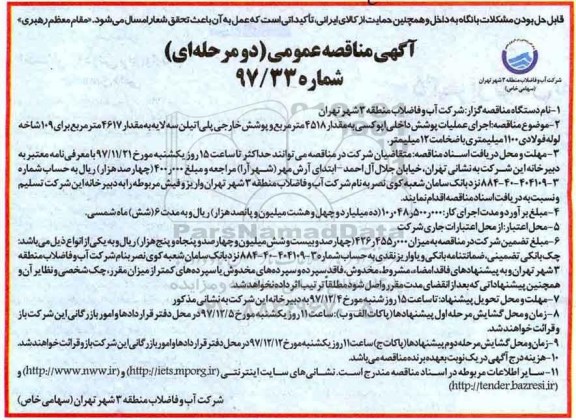 قابل حل بودن مشکلات با نگاه به داخل و همچنین حمایت از کالای ایرانی، تأکیداتی است که عمل به آن باعث تحقق شعار امسال می‌شود. «مقام معظم رهبری»
آگهی مناقصه عمومی (دو مرحله‌ای)
شماره ۹۷/۳۳
شرکت آب و فاضلاب منطقه ۳ شهر تهران
(سهامی خاص)
۱- نام دستگاه مناقصه گزار: شرکت آب و فاضلاب منطقه ۳ شهر تهران
۲- موضوع مناقصه: اجرای عملیات پوشش داخلی اپوکسی به مقدار ۴۵۱۸ متر مربع و پوشش خارجی پلی اتیلن سه لایه به مقدار ۴۶۱۷ متر مربع برای ۱۰۹ شاخه
لوله فولادی ۱۱۰۰ میلیمتری با ضخامت ۱۲ میلیمتر
۳- مهلت و محل دریافت اسناد مناقصه: متقاضیان شرکت در مناقصه می توانند حداکثر تا ساعت ۱۵ روز یکشنبه مورخ ۹۷/۱۱/۲۱ با معرفی نامه معتبر به
دبیرخانه این شرکت به نشانی تهران، خیابان جلال آل احمد - ابتدای آرش مهر (شهرآرا) مراجعه و مبلغ ۴۰۰٫۰۰۰ (چهارصد هزار) ریال به حساب شماره
۳-۴۰۴۱۰۹-۴۰-۸۸۴ نزد بانک سامان شعبه کوی نصر به نام شرکت آب و فاضلاب منطقه ۳ شهر تهران واریز و فیش مربوطه را به دبیرخانه این شرکت تسلیم
و نسبت به دریافت اسناد مناقصه اقدام نمایند.
۴- مبلغ برآورد و مدت اجرای کار: ۱۰٫۰۴۸٫۵۰۰٫۰۰۰ (ده میلیارد و چهل و هشت میلیون و پانصد هزار) ریال و به مدت ۶ (شش) ماه شمسی.
۵- محل اعتبار: از محل اعتبارات جاری شرکت
۶- مبلغ تضمین شرکت در مناقصه به میزان ۴۲۶٫۴۵۵٫۰۰۰ (چهارصد و بیست و شش میلیون و چهارصد و پنجاه و پنج هزار) ریال و به یکی از انواع ذیل می باشد:
چک بانکی تضمینی، ضمانتنامه بانکی و یا واریز نقدی به حساب شماره ۳-۴۰۴۱۰۹-۴۰-۸۸۴ نزد بانک سامان شعبه کوی نصر بنام شرکت آب و فاضلاب منطقه
۳ شهر تهران و به پیشنهادهای فاقد امضاء، مشروط، مخدوش، فاقد سپرده و سپرده های مخدوش یا سپرده های کمتر از میزان مقرر، چک شخصی و نظایر آن و
همچنین پیشنهاداتی که بعد از انقضای مدت مقرر واصل شود مطلقا ترتیب اثر داده نخواهد شد
۷- مهلت و محل تحویل پیشنهاد: تا ساعت ۱۵ روز شنبه مورخ ۹۷/۱۲/۴ به دبیرخانه این شرکت به نشانی مذکور
۸- زمان و محل گشایش مرحله اول پیشنهادها (پاکات الف و ب): ساعت ۱۱ روز یکشنبه مورخ ۹۷/۱۲/۵ در محل دفتر قراردادها و امور بازرگانی این شرکت باز
و قرائت خواهند شد.
۹- زمان و محل گشایش مرحله دوم پیشنهادها (پاکات ج) ساعت ۱۱ روز یکشنبه مورخ ۹۷/۱۲/۱۲ در محل دفتر قراردادها و امور بازرگانی این شرکت باز و قرائت خواهند شد.
۱۰- هزینه درج آگهی در یک نوبت به عهده برنده مناقصه می باشد.
۱۱- سایر اطلاعات مربوطه در اسناد مناقصه مندرج است. نشانی های سایت اینترنتی (http://iets.mporg.ir) و (http://www.nww.ir) و
(http://tender.bazresi.ir)
شرکت آب و فاضلاب منطقه ۳ شهر تهران (سهامی خاص)
ParsNamadData